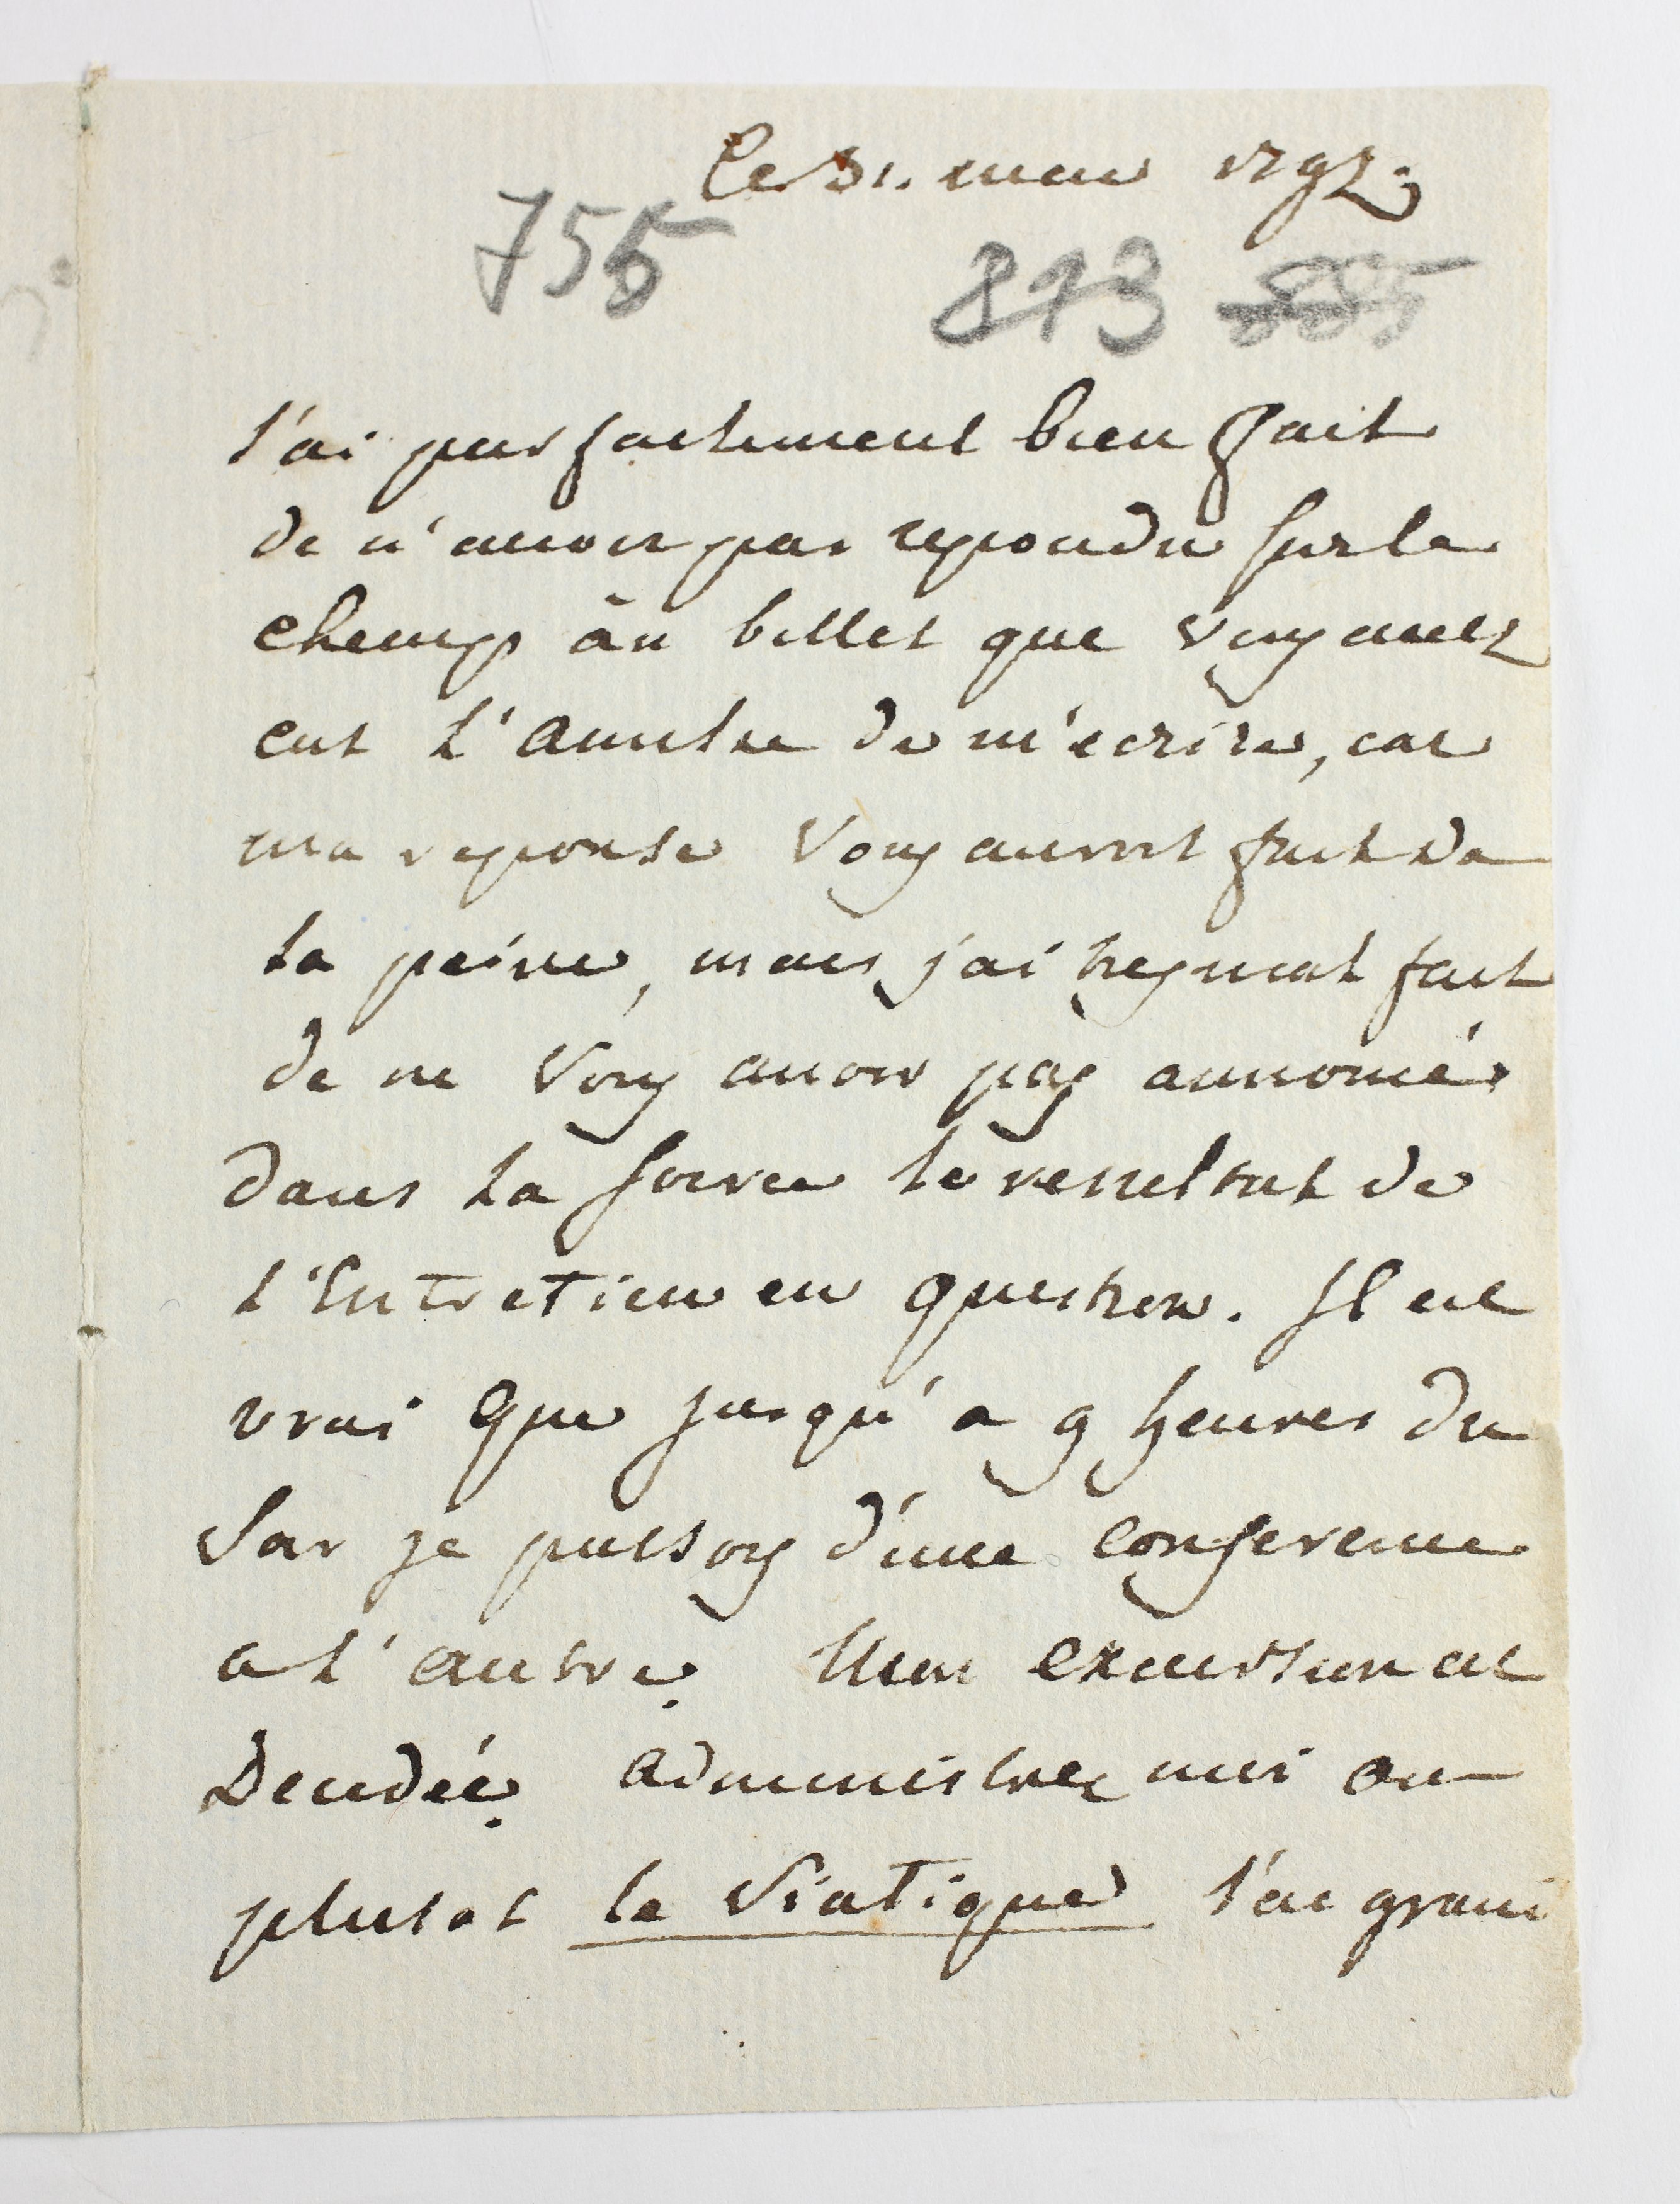 le 31. mai 1792.
755 893
J'ai parfaitement bien fait
de n'avoir pas repondu sur le
champ au billet que vous avez
eut l'amitie de m'ecrire, car
ma reponse vous auroit fait de
la peine, mais j'ai tresmal fait
de ne vous avoir pas annoncé
dans la soiree le resultat de
l'Entretien en question. Il est
vrai que jusqu'a 9 heures du
soir je passois d'une conference
a l'autre. Mon excursion est
Decidée. administrez moi au
plutot le Viatique j'ai grand